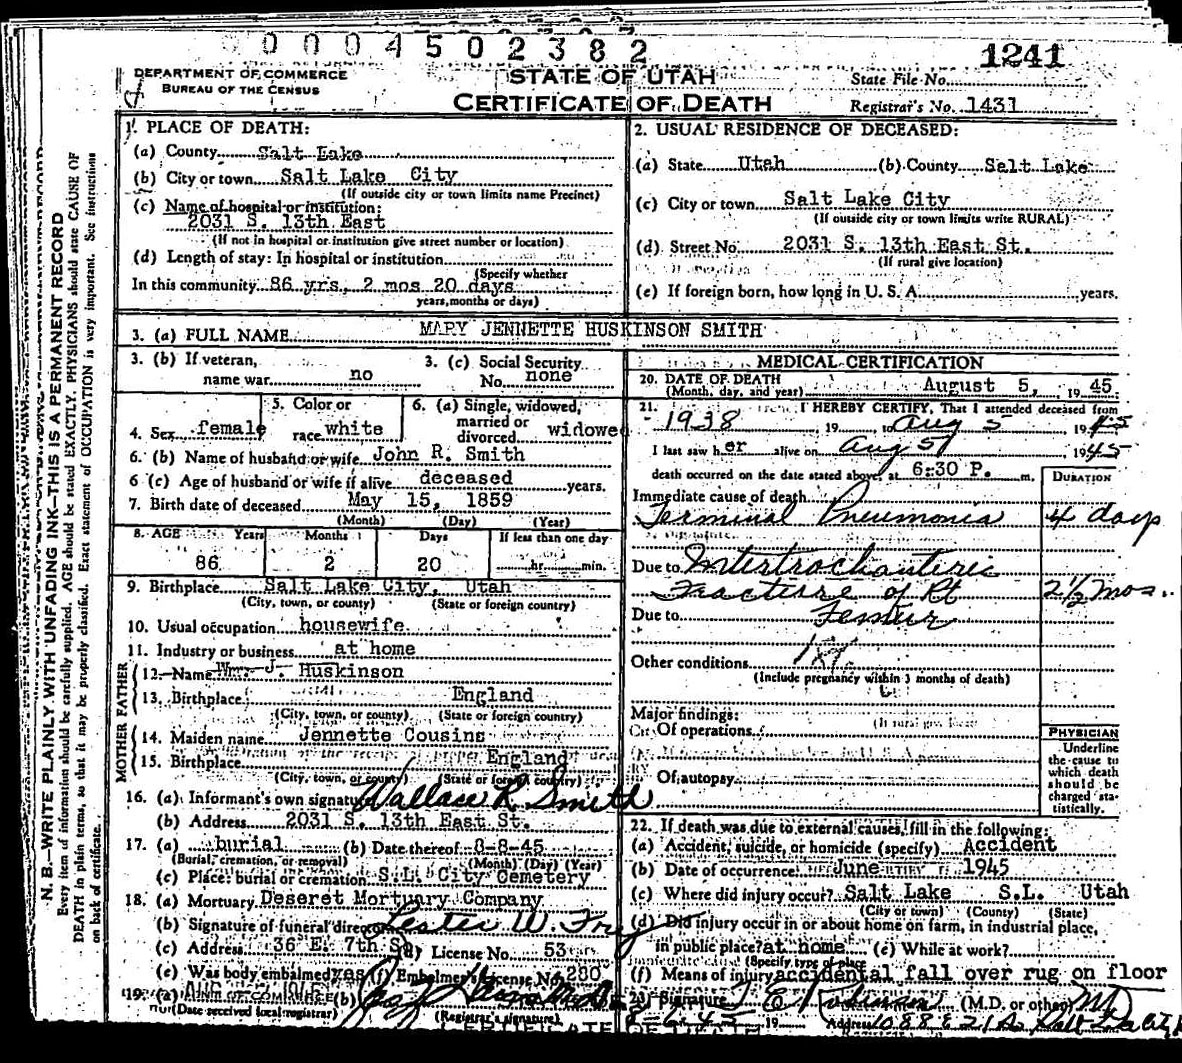 0 0 0 4 5 0 2 3 8 2
1241
DEPARTMENT OF COMMERCE
BUREAU OF THE CENSUS
STATE OF UTAH
CERTIFICATE OF DEATH
State File No.
Registrar's No. 1431
N. B.—WRITE PLAINLY WITH UNFADING INK—THIS IS A PERMANENT RECORD
Every item of information should be carefully supplied. AGE should be stated EXACTLY. PHYSICIANS should state CAUSE OF
DEATH in plain terms, so that it may be properly classified. Exact statement of OCCUPATION is very important. See instructions
on back of certificate.
1. PLACE OF DEATH:
(a) County Salt Lake
(b) City or town Salt Lake City
(If outside city or town limits name Precinct)
(c) Name of hospital or institution:
2031 S. 13th East
(If not in hospital or institution give street number or location)
(d) Length of stay: In hospital or institution
(Specify whether
In this community 86 yrs. 2 mos 20 days
years, months or days)
2. USUAL RESIDENCE OF DECEASED:
(a) State Utah (b) County Salt Lake
(c) City or town Salt Lake City
(If outside city or town limits write RURAL)
(d) Street No. 2031 S. 13th East St.
(If rural give location)
(e) If foreign born, how long in U. S. A. years.
3. (a) FULL NAME MARY JENNETTE HUSKINSON SMITH
3. (b) If veteran, 3. (c) Social Security
name war no No. none
4. Sex female 5. Color or race white 6. (a) Single, widowed, married or divorced widowed
6. (b) Name of husband or wife John R. Smith
6 (c) Age of husband or wife if alive deceased years.
7. Birth date of deceased May 15, 1859
(Month) (Day) (Year)
8. AGE Years Months Days If less than one day
86 2 20 hr. min.
9. Birthplace Salt Lake City, Utah
(City, town, or county) (State or foreign country)
10. Usual occupation housewife
11. Industry or business at home
FATHER
12. Name Wm. J. Huskinson
13. Birthplace England
(City, town, or county) (State or foreign country)
MOTHER
14. Maiden name Jennette Cousins
15. Birthplace England
(City, town, or county) (State or foreign country)
16. (a) Informant's own signature Wallace R Smith
(b) Address 2031 S. 13th East St.
17. (a) burial (b) Date thereof 8-8-45
(Burial, cremation, or removal) (Month) (Day) (Year)
(c) Place: burial or cremation S.L. City Cemetery
18. (a) Mortuary Deseret Mortuary Company
(b) Signature of funeral director Lester W.
(c) Address 36 E. 7th So (d) License No. 53
(e) Was body embalmed yes (f) Embalmer's License No. 280
19. (a) (b)
(Date received local registrar) (Registrar's signature)
MEDICAL CERTIFICATION
20. DATE OF DEATH
(Month, day, and year) August 5, 1945
21. I HEREBY CERTIFY, That I attended deceased from
1938, 19 , to Aug 5, 1945
I last saw her alive on Aug 5, 1945
death occurred on the date stated above, at 6:30 P. m. DURATION
Immediate cause of death
Terminal Pneumonia 4 days
Due to Intertrochanteric
Fracture of Rt 2½ mos.
Due to Femur
Other conditions
(Include pregnancy within 3 months of death)
Major findings:
Of operations
Of autopsy
PHYSICIAN
Underline
the cause to
which death
should be
charged sta-
tistically.
22. If death was due to external causes, fill in the following:
(a) Accident, suicide, or homicide (specify) Accident
(b) Date of occurrence June 1945
(c) Where did injury occur? Salt Lake S.L. Utah
(City or town) (County) (State)
(d) Did injury occur in or about home on farm, in industrial place,
in public place? at home (e) While at work?
(Specify type of place
(f) Means of injury accidental fall over rug on floor
23. Signature (M.D. or other) MD
8-6-45 19 Address 1088 E 21 So Salt Lake City